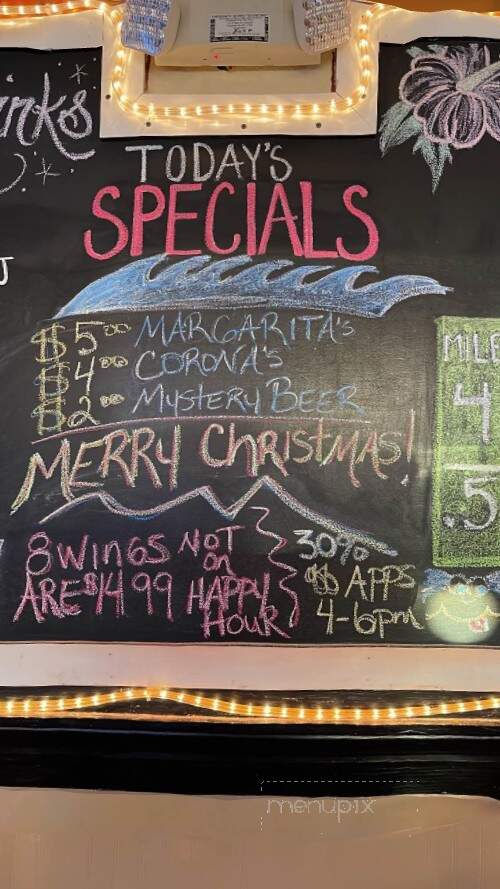 TODAY'S
SPECIALS
$5.00 MARGARITA'S
$4.00 CORONA'S
$2.00 MYSTERY BEER
MERRY CHRISTMAS!
8 WINGS NOT
ON
ARE $14.99 HAPPY
HOUR
30%
$$ APPS
4-6pm
MILE
4
.5
menupix